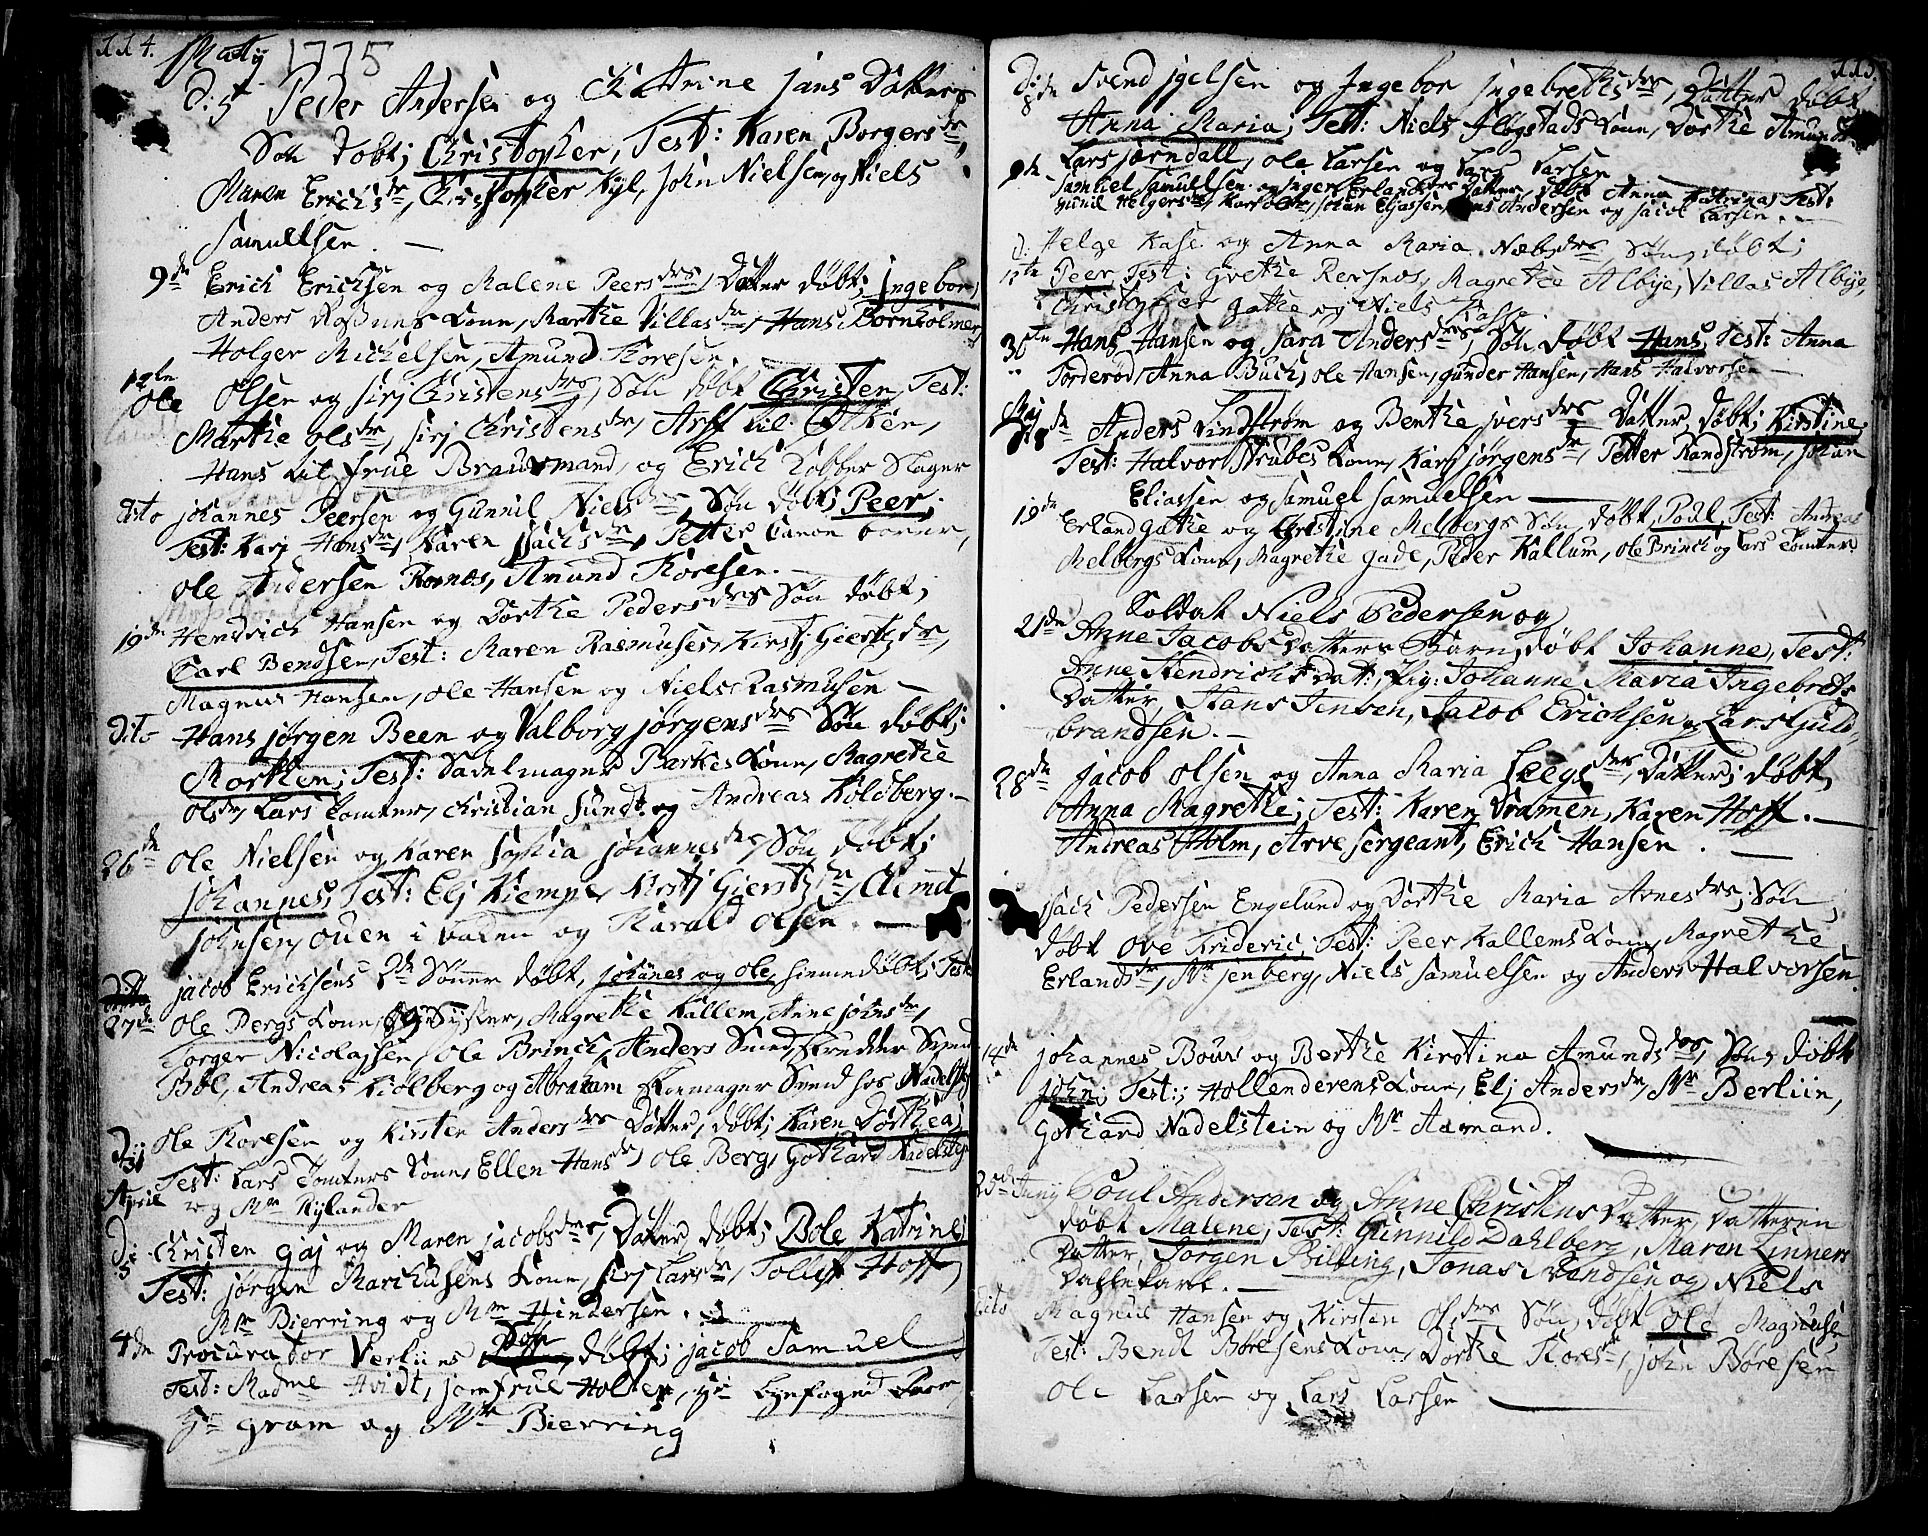 114. Martij 1775
D: 5t Peder Andersen og Cathrine Jans Datters
Søn døbt; Christopher, Test: Karen Borgersdr,
Maren Erichsdr, Christopher Kyl, John Nielsen, og Niels
Samuelsen. —
9de Erich Erichsen og Malene Peersdrs, Datter døbt; Ingebor,
Anders Koone, Marthe Villasdr, Hans Bornholmer,
Holger Michelsen, Amund Thoresen.
12te Ole Olsen og Sirj Christensdrs, Søn døbt Christen, Test:
Marthe Olsdr, Sirj Christensdr, Arff til
Hans til frue Brausmand, og Erich Kobber Slager
dito Johannes Peersen og Gunnil Nielsdrs, Søn døbt; Peer;
Test: Karj Hansdr, Karen Isachsdr, Petter Canon borer,
Ole Andersen Romnes, Amund Thoresen. —
19de Hendrich Hansen og Dorthe Pedersdrs Søn døbt;
Carl Bendsen, Test: Maren Rasmuses, Kirstj Giertzdr,
Magnus Hansen, Ole Hansen og Niels Rasmusen —
dito Hans Jørgen Been og Valborg Jørgensdrs Søn døbt;
Morthen; Test: Sadelmager Barkes Kone, Magrethe
Olsdr, Lars Tomter, Christian Sundt og Andreas Koldberg. —
26de Ole Nielsen og Karen Sophia Johannesdr, Søn døbt;
Johannes, Test: Elj Kiempe, Kirstj Giertzdr, Clemet
Johnsen, ouen i baken og Harald Olsen. —
27de Jacob Erichsens 2de Sønner døbt, Johanes og Ole, hiemmedøbt; Test
Ole Bergs Kone, Syster, Magrethe Kallem, Anne Johnsdr,
Torger Nicolassen, Ole Brinch, Anders Smed, Skredder Svend
Bøl, Andreas Kiolberg og Abraham Svend hos Nadelsty
D: 31 Ole Thoresen og Kirsten Andersdrs Datter, døbt; Karen Dorthea;
Test: Lars Tomters Kone, Ellen Hansdr, Ole Berg, Gothard Nadelstyn
April og Mr Nylander
D: 3 Christen Gaj og Maren Jacobsdrs, Datter, døbt; Bole Katrine;
Test: Jørgen Marchusens Kone, Sirj Larsdr, Tollef Hoff,
Mr Bierring og Mr Hindersen.
4de Procurator Verliins Søn døbt; Jacob Samuel
Test: Madme Hvidt, Jomfrue Holter, Hr Byefoged
Hr Gram og Mr Bierring
115.
D: 8de Svend Igelsen og Ingebor Ingebrethsdrs, Datter døbt
Anna Maria; Test: Niels Høgstads Kone, Dorthe Amundsdr
Lars Jerndall, Ole Larsen og Lars Larsen
9de Samuel Samuelsen og Inger Erlandsdrs Datter, døbt Anna Katrina, Test:
Gunil Helgersdr, Kari Olsdr, Johan Eliassen, Hans Andersen og Jacob Larsen. —
d: 17te Helge Kase og Anna Maria Næbsdrs, Søn, døbt;
Peer, Test: Grethe Rersnos, Magrethe Albye, Villas Albye,
Christopher Gathe og Niels Hasse.
30te Hans Hansen og Sara Andersdrs, Søn døbt Hans, Test: Anna
Torderød, Anna Buch, Ole Hansen, Gunder Hansen, Hans Halvorsen —
Maj 18de Anders Lindstrøm og Benthe Iversdrs Datter, døbt; Kirstine,
Test: Halvor Strubes Kone, Karj Jørgensdr, Petter Randstrøm, Johan
Eliassen og Samuel Samuelsen —
19de Erland Gathe og Christine Melbergs Søn, døbt, Poul, Test: Andreas
Melbergs Kone, Magrethe Gade, Peder Kallum, Ole Brinch og Lars Tomter
21de Soldat Niels Pedersen og
Anne Jacobsdatters Barn døbt Johanne, Test:
Anne Hendrichsdat:, Pig: Johanne Maria Ingebrets
Datter, Hans Jensen, Jacob Erichsen og Lars Guld,
brandsen. —
28de Jacob Olsen og Anna Maria Leegsdrs, Datter; døbt,
Anna Magrethe; Test: Karen Dramen, Karen Hoff. —
Andreas Holm, Arve Sergeant, Erich Hansen. —
Isach Pedersen Engelund og Dorthe Maria Arnesdrs; Søn;
døbt Ove Frideric; Test: Peer Kallems Kone, Magrethe
Erlandsdr, Mr Isenberg, Niels Samuelsen og Anders Halvorsen.
14de Johannes Bours og Berthe Kirstina Amundsdrs, Søn, døbt
John; Test:; Hollenderens Kone, Elj Andersdr, Mr Berliin,
Gothard Nadelstein og Mr Aamand.
Junij Poul Andersen og Anne Christens Datter, Datteren
døbt Malene, Test: Gunnild Dahlberg, Maren Linners
Datter, Jørgen Billing, Jonas Svendsen og Niels
dito Magnus Hansen og Kirsten Olsdrs Søn, døbt Ole Magnusen
Test: Bendt Børesens Kone, Dorthe Thoresdr, John Børesen
Ole Larsen og Lars Larsen —